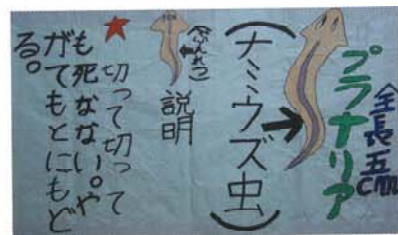 全長五cm
プラナリア
(ナミウズ虫)
(ぶんれつ)
説明
★切って切って
も死なない。や
がてもとにもど
る。